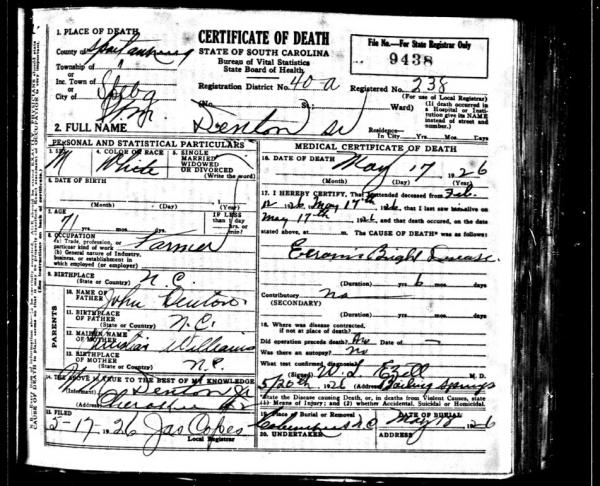 1. PLACE OF DEATH
County of Spartanburg
Township of
or
Inc. Town of
or
City of
CERTIFICATE OF DEATH
STATE OF SOUTH CAROLINA
Bureau of Vital Statistics
State Board of Health
File No.—For State Registrar Only
9438
Registration District No. 40-a Registered No. 238
(For use of Local Registrar)
(No. St.; Ward)
(If death occurred in a Hospital or Institution give its NAME instead of street and number.)
2. FULL NAME Denton Sr
Residence— In City Yrs. Mos. Days
PERSONAL AND STATISTICAL PARTICULARS
3. SEX M
4. COLOR OR RACE White
5. SINGLE MARRIED WIDOWED OR DIVORCED (Write the word)
6. DATE OF BIRTH
(Month) (Day) (Year)
7. AGE 71 yrs. mos. ds.
IF LESS than 1 day hrs. or min?
8. OCCUPATION
(a) Trade, profession, or particular kind of work Farmer
(b) General nature of Industry, business, or establishment in which employed (or employer)
9. BIRTHPLACE N.C.
(State or Country)
PARENTS
10. NAME OF FATHER John Denton
11. BIRTHPLACE OF FATHER N.C.
(State or Country)
12. MAIDEN NAME OF MOTHER Williams
13. BIRTHPLACE OF MOTHER N.C.
(State or Country)
14. THE ABOVE IS TRUE TO THE BEST OF MY KNOWLEDGE
(Informant) Denton Jr
(Address)
15. FILED
5-17 1926 Jas Copes
Local Registrar
MEDICAL CERTIFICATE OF DEATH
16. DATE OF DEATH May 17 1926
(Month) (Day) (Year)
17. I HEREBY CERTIFY, That I attended deceased from Feb.
12 1926 May 17th 1926, that I last saw him alive on
May 17th 1926, and that death occurred, on the date
stated above, at m. The CAUSE OF DEATH* was as follows:
Bright Disease.
(Duration) yrs. 6 mos. days
Contributory no
(SECONDARY)
(Duration) yrs. mos. days
18. Where was disease contracted, if not at place of death?
Did operation precede death? No Date of —
Was there an autopsy? no
What test confirmed diagnosis?
(Signed) W. L. Ezell M.D.
5/20th, 1926 (Address) Springs
*State the Disease causing Death, or, in deaths from Violent Causes, state
(1) Means of Injury; and (2) whether Accidental, Suicidal or Homicidal.
19. Place of Burial or Removal Columbus N.C.
DATE OF BURIAL May 18 1926
20. UNDERTAKER
ADDRESS